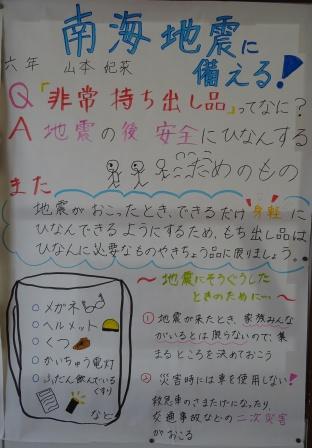 南海地震に
備える!
六年 山本 妃菜
Q「非常持ち出し品」ってなに?
A 地震の後 安全にひなんする
ためのもの
また
地震がおこったとき、できるだけ身軽に
ひなんできるようにするため、もち出し品は
ひなんに必要なものやきちょう品に限りましょう。
○メガネ
○ヘルメット
○くつ
○かいちゅう電灯
○ふだん飲んでいる
くすり
など
〜地震にそうぐうした
ときのために…〜
① 地震が来たとき、家族みんな
がいるとは限らないので、集
まるところを決めておこう
② 災害時には車を使用しない!
救急車のさまたげになったり、
交通事故などの二次災害
がおこる